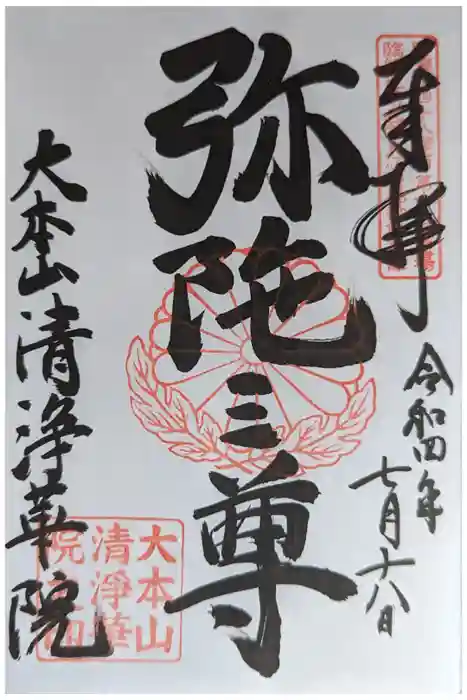 奉拝
令和四年
七月十八日
弥陀三尊
大本山清浄華院
大本山
清浄華
院之印